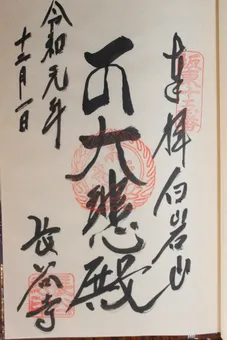 坂東十五番
奉拝 白岩山
大悲殿
長谷寺
令和元年
十二月一日